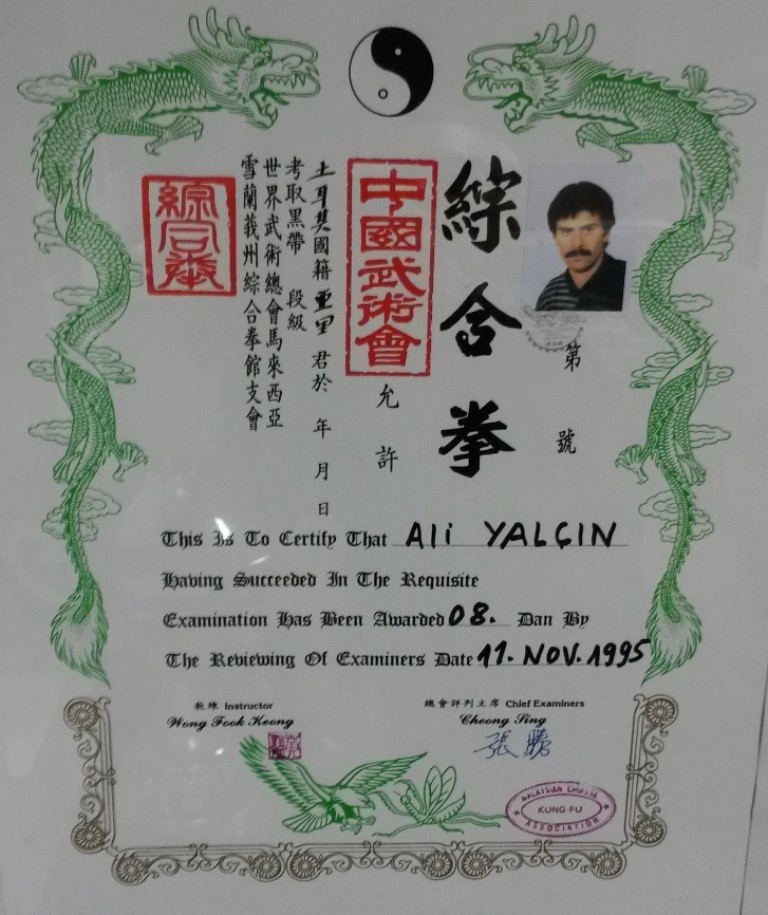 綜合拳
第 號
中國武術會
允許
土耳其國籍 亜里 君於 年 月 日
考取黑帶 段級
世界武術總會馬來西亞
雪蘭莪州綜合拳館支會
綜合拳
This Is To Certify That Ali YALÇIN
Having Succeeded In The Requisite
Examination Has Been Awarded 08. Dan By
The Reviewing Of Examiners Date 11. NOV. 1995
教練 Instructor
Wong Fook Keong
總會評判主席 Chief Examiners
Cheong Sing
張勝
MALAYSIAN CHINESE
KUNG-FU
ASSOCIATION